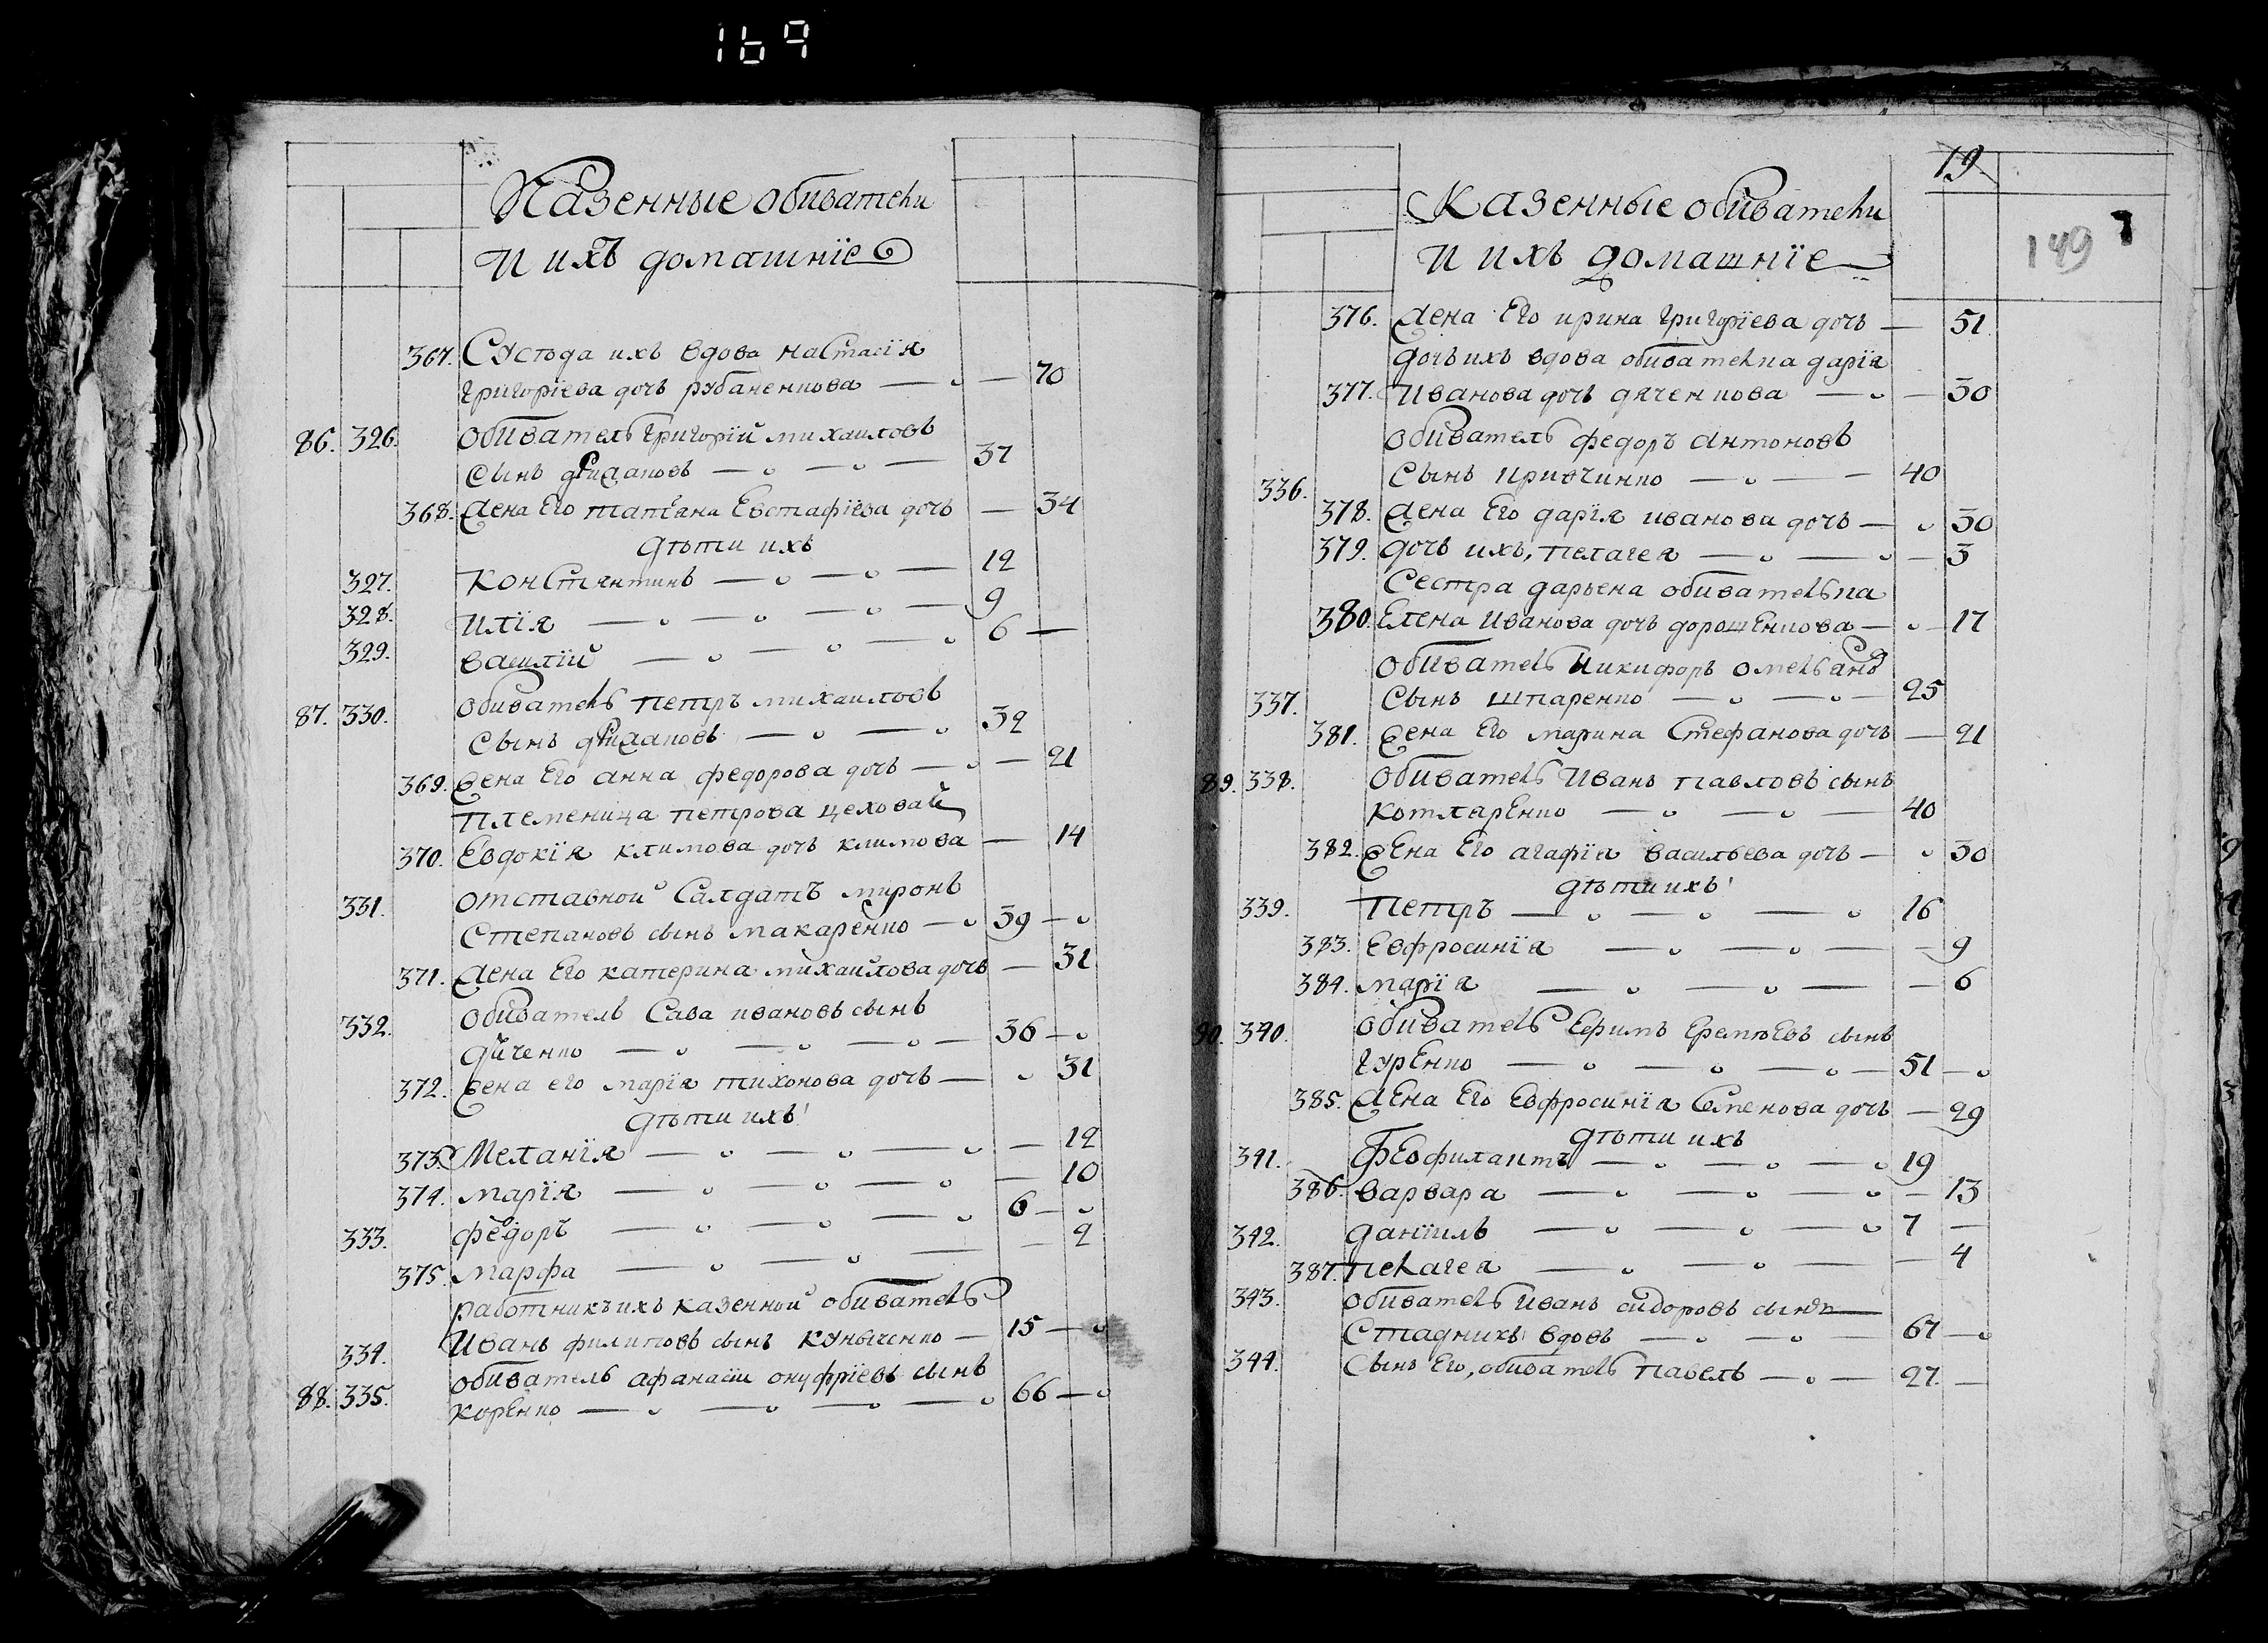 169
Казенные обиватели
И ихъ домашніе
367. Сусѣда ихъ вдова настасія
григоріева дочь рубаненкова — 70
86. 326. обиватель григорій михаиловъ
сынъ — 37
368. жена Его татіана Евстафіева дочь — 34
дѣти ихъ
327. Константинъ — 12
328. Илія — 9
329. василій — 6 —
87. 330. обиватель петръ михаиловъ
сынъ — 32
369. жена Его анна федорова дочь — 21
племеница петрова цеховай
370. Евдокія климова дочь климова — 14
331. отставной Салдатъ миронъ
Степановъ сынъ макаренко — 39 —
371. жена Его катерина михаилова дочь — 31
332. обиватель Сава ивановъ сынъ
дяченко — 36 —
372. жена его марія тихонова дочь — 31
дѣти ихъ
373. Меланія — 12
374. марія — 10
333. федоръ — 6 —
375. марфа — 2
работникъ ихъ казенной обиватель
334. Иванъ филиповъ сынъ куниченко — 15 —
88. 335. обиватель афанасій онуфріевъ сынъ
коренко — 66 —
19
149
Казенные обиватели
и ихъ домашніе
376. жена Его ирина григоріева дочь — 51
дочь ихъ вдова обивателка дарія
377. Иванова дочь дяченкова — 30
обиватель федоръ антоновъ
336. сынъ кривчинко — 40
378. жена Его дарія иванова дочь — 30
379. дочь ихъ, пелагея — 3
Сестра дарьена обивателька
380. Елена Иванова дочь дорошЕнкова — 17
обиватель Никифоръ омельянъ
337. Сынъ шпаренко — 25
381. жена Его марина Стефанова дочь — 21
89. 338. обиватель Иванъ павловъ сынъ
котлярЕнко — 40
382. жЕна Его агафія васильева дочь — 30
дѣти ихъ
339. Петръ — 16
383. Евфросинія — 9
384. марія — 6
90. 340. обиватель Ефимъ ЕремѣЕвъ сынъ
гурЕнко — 51 —
385. жЕна Его Евфросинія Семенова дочь — 29
дѣти ихъ
341. ФЕофилактъ — 19
386. варвара — 13
342. даніилъ — 7 —
387. пелагея — 4
343. обиватель Иванъ сидоровъ сынъ
Стадникъ вдовъ — 67 —
344. Сынъ Его, обиватель павелъ — 27 —